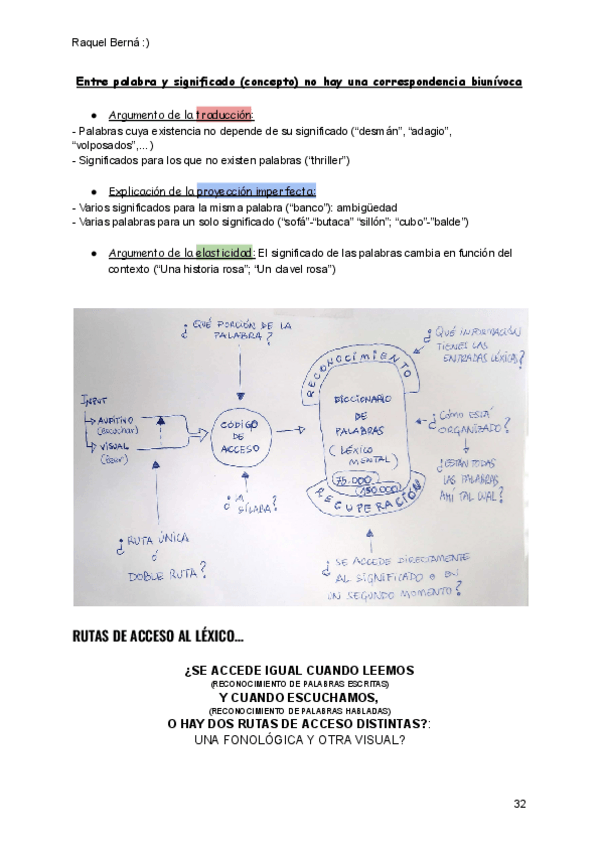 Raquel Berná :)
Entre palabra y significado (concepto) no hay una correspondencia biunívoca
● Argumento de la traducción:
- Palabras cuya existencia no depende de su significado (“desmán”, “adagio”,
“volposados”,...)
- Significados para los que no existen palabras (“thriller”)
● Explicación de la proyección imperfecta:
- Varios significados para la misma palabra (“banco”): ambigüedad
- Varias palabras para un solo significado (“sofá”-“butaca” “sillón”; “cubo”-”balde”)
● Argumento de la elasticidad: El significado de las palabras cambia en función del
contexto (“Una historia rosa”; “Un clavel rosa”)
¿QUÉ PORCIÓN DE LA
PALABRA?
¿QUÉ INFORMACIÓN
TIENES LAS
ENTRADAS LÉXICAS?
RECONOCIMIENTO
INPUT
AUDITIVO
(escuchar)
VISUAL
(leer)
CÓDIGO
DE
ACCESO
DICCIONARIO
DE
PALABRAS
(LÉXICO
MENTAL)
75.000
150.000
RECUPERACIÓN
¿CÓMO ESTÁ
ORGANIZADO?
¿ESTÁN TODAS
LAS PALABRAS
AHÍ TAL CUAL?
¿LA
SÍLABA?
¿RUTA ÚNICA
Ó
DOBLE RUTA?
¿SE ACCEDE DIRECTAMENTE
AL SIGNIFICADO O EN
UN SEGUNDO MOMENTO?
RUTAS DE ACCESO AL LÉXICO...
¿SE ACCEDE IGUAL CUANDO LEEMOS
(RECONOCIMIENTO DE PALABRAS ESCRITAS)
Y CUANDO ESCUCHAMOS,
(RECONOCIMIENTO DE PALABRAS HABLADAS)
O HAY DOS RUTAS DE ACCESO DISTINTAS?:
UNA FONOLÓGICA Y OTRA VISUAL?
32